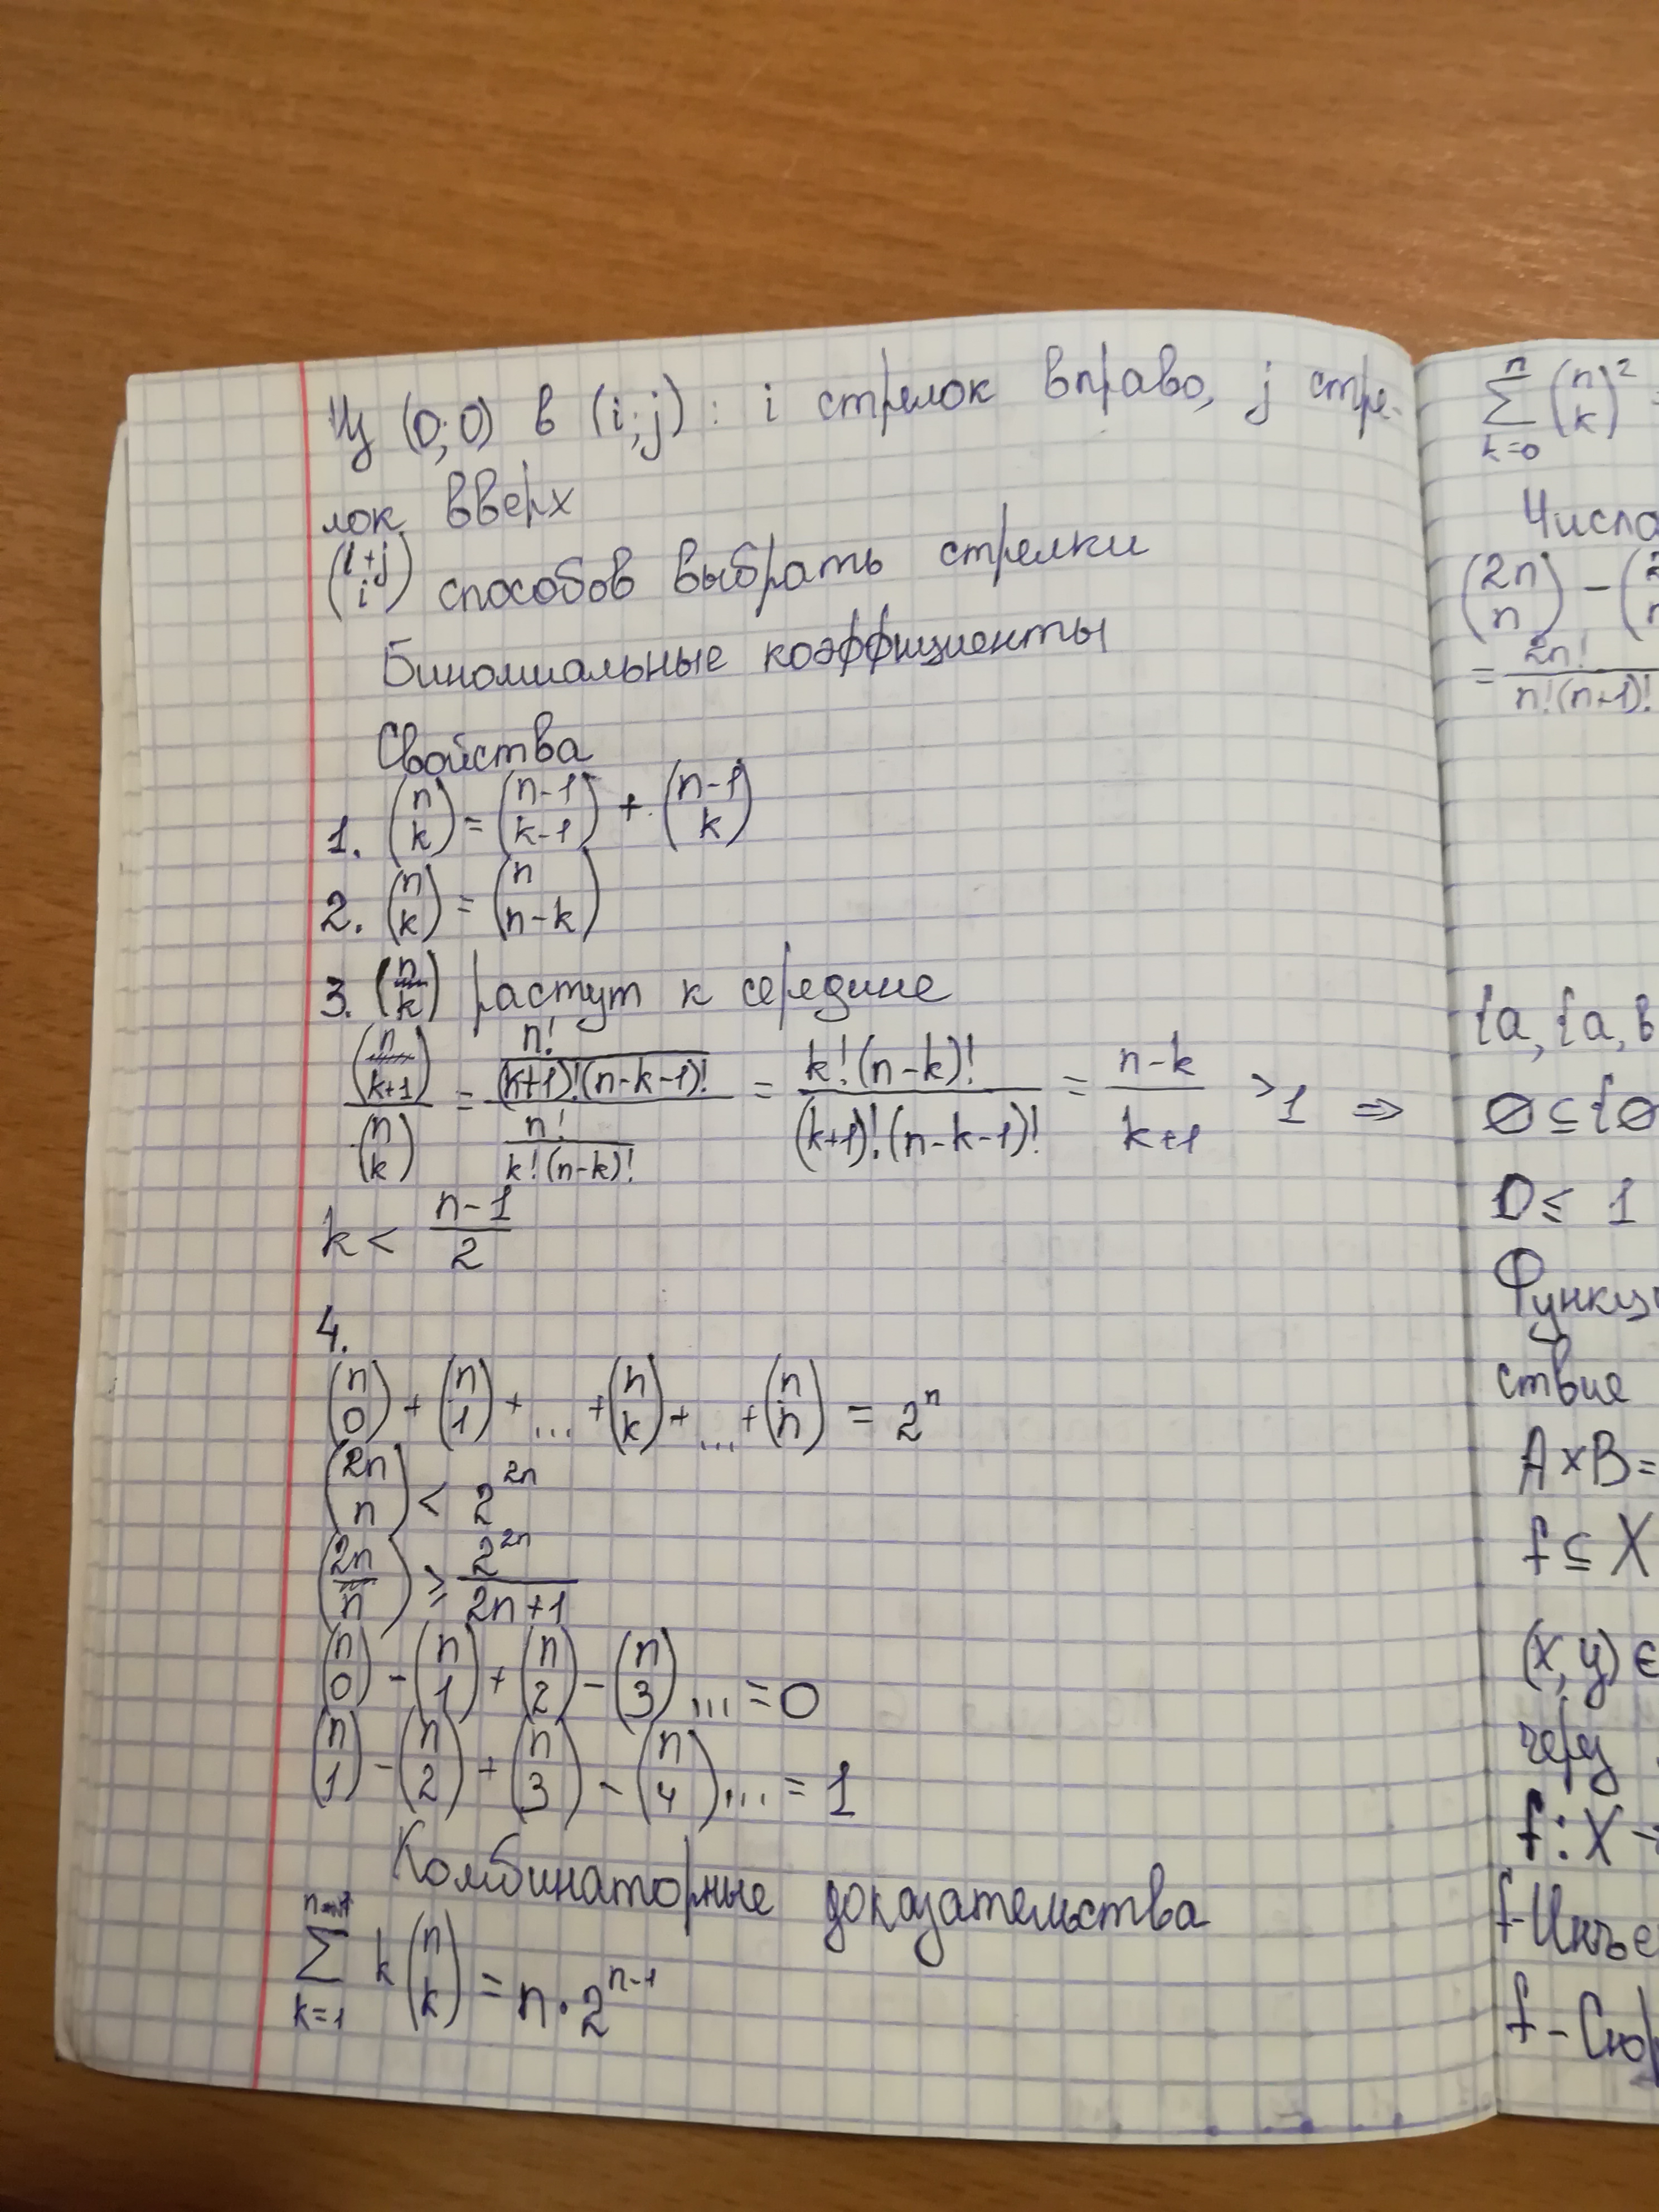 Из (0;0) в (i;j): i стрелок вправо, j стре-
лок вверх
(i+j
i) способов выбрать стрелки
Биномиальные коэффициенты
Свойства
1. (n k) = (n-1 k-1) + (n-1 k)
2. (n k) = (n n-k)
3. (n k) растут к середине
(n k+1) / (n k) = (n! / (k+1)!(n-k-1)!) / (n! / k!(n-k)!) = k!(n-k)! / (k+1)!(n-k-1)! = n-k / k+1 >1 ⇒
k < n-1 / 2
4.
(n 0) + (n 1) + ... + (n k) + ... + (n n) = 2^n
(2n n) < 2^2n
(2n n) ⩾ 2^2n / 2n+1
(n 0) - (n 1) + (n 2) - (n 3) ... = 0
(n 1) - (n 2) + (n 3) - (n 4) ... = 1
Комбинаторные доказательства
∑ k=1 k (n k) = n · 2^n-1
n ∑ k=0 (n k)^2
Числа
(2n n) - (2
= 2n! / n!(n+1)!
{a, {a, b
∅ ⊆ {∅
0 ⩽ 1
Функц
ствие
A×B=
f ⊆ X
(x, y) ∈
через
f: X →
f-Инъе
f-Сюр